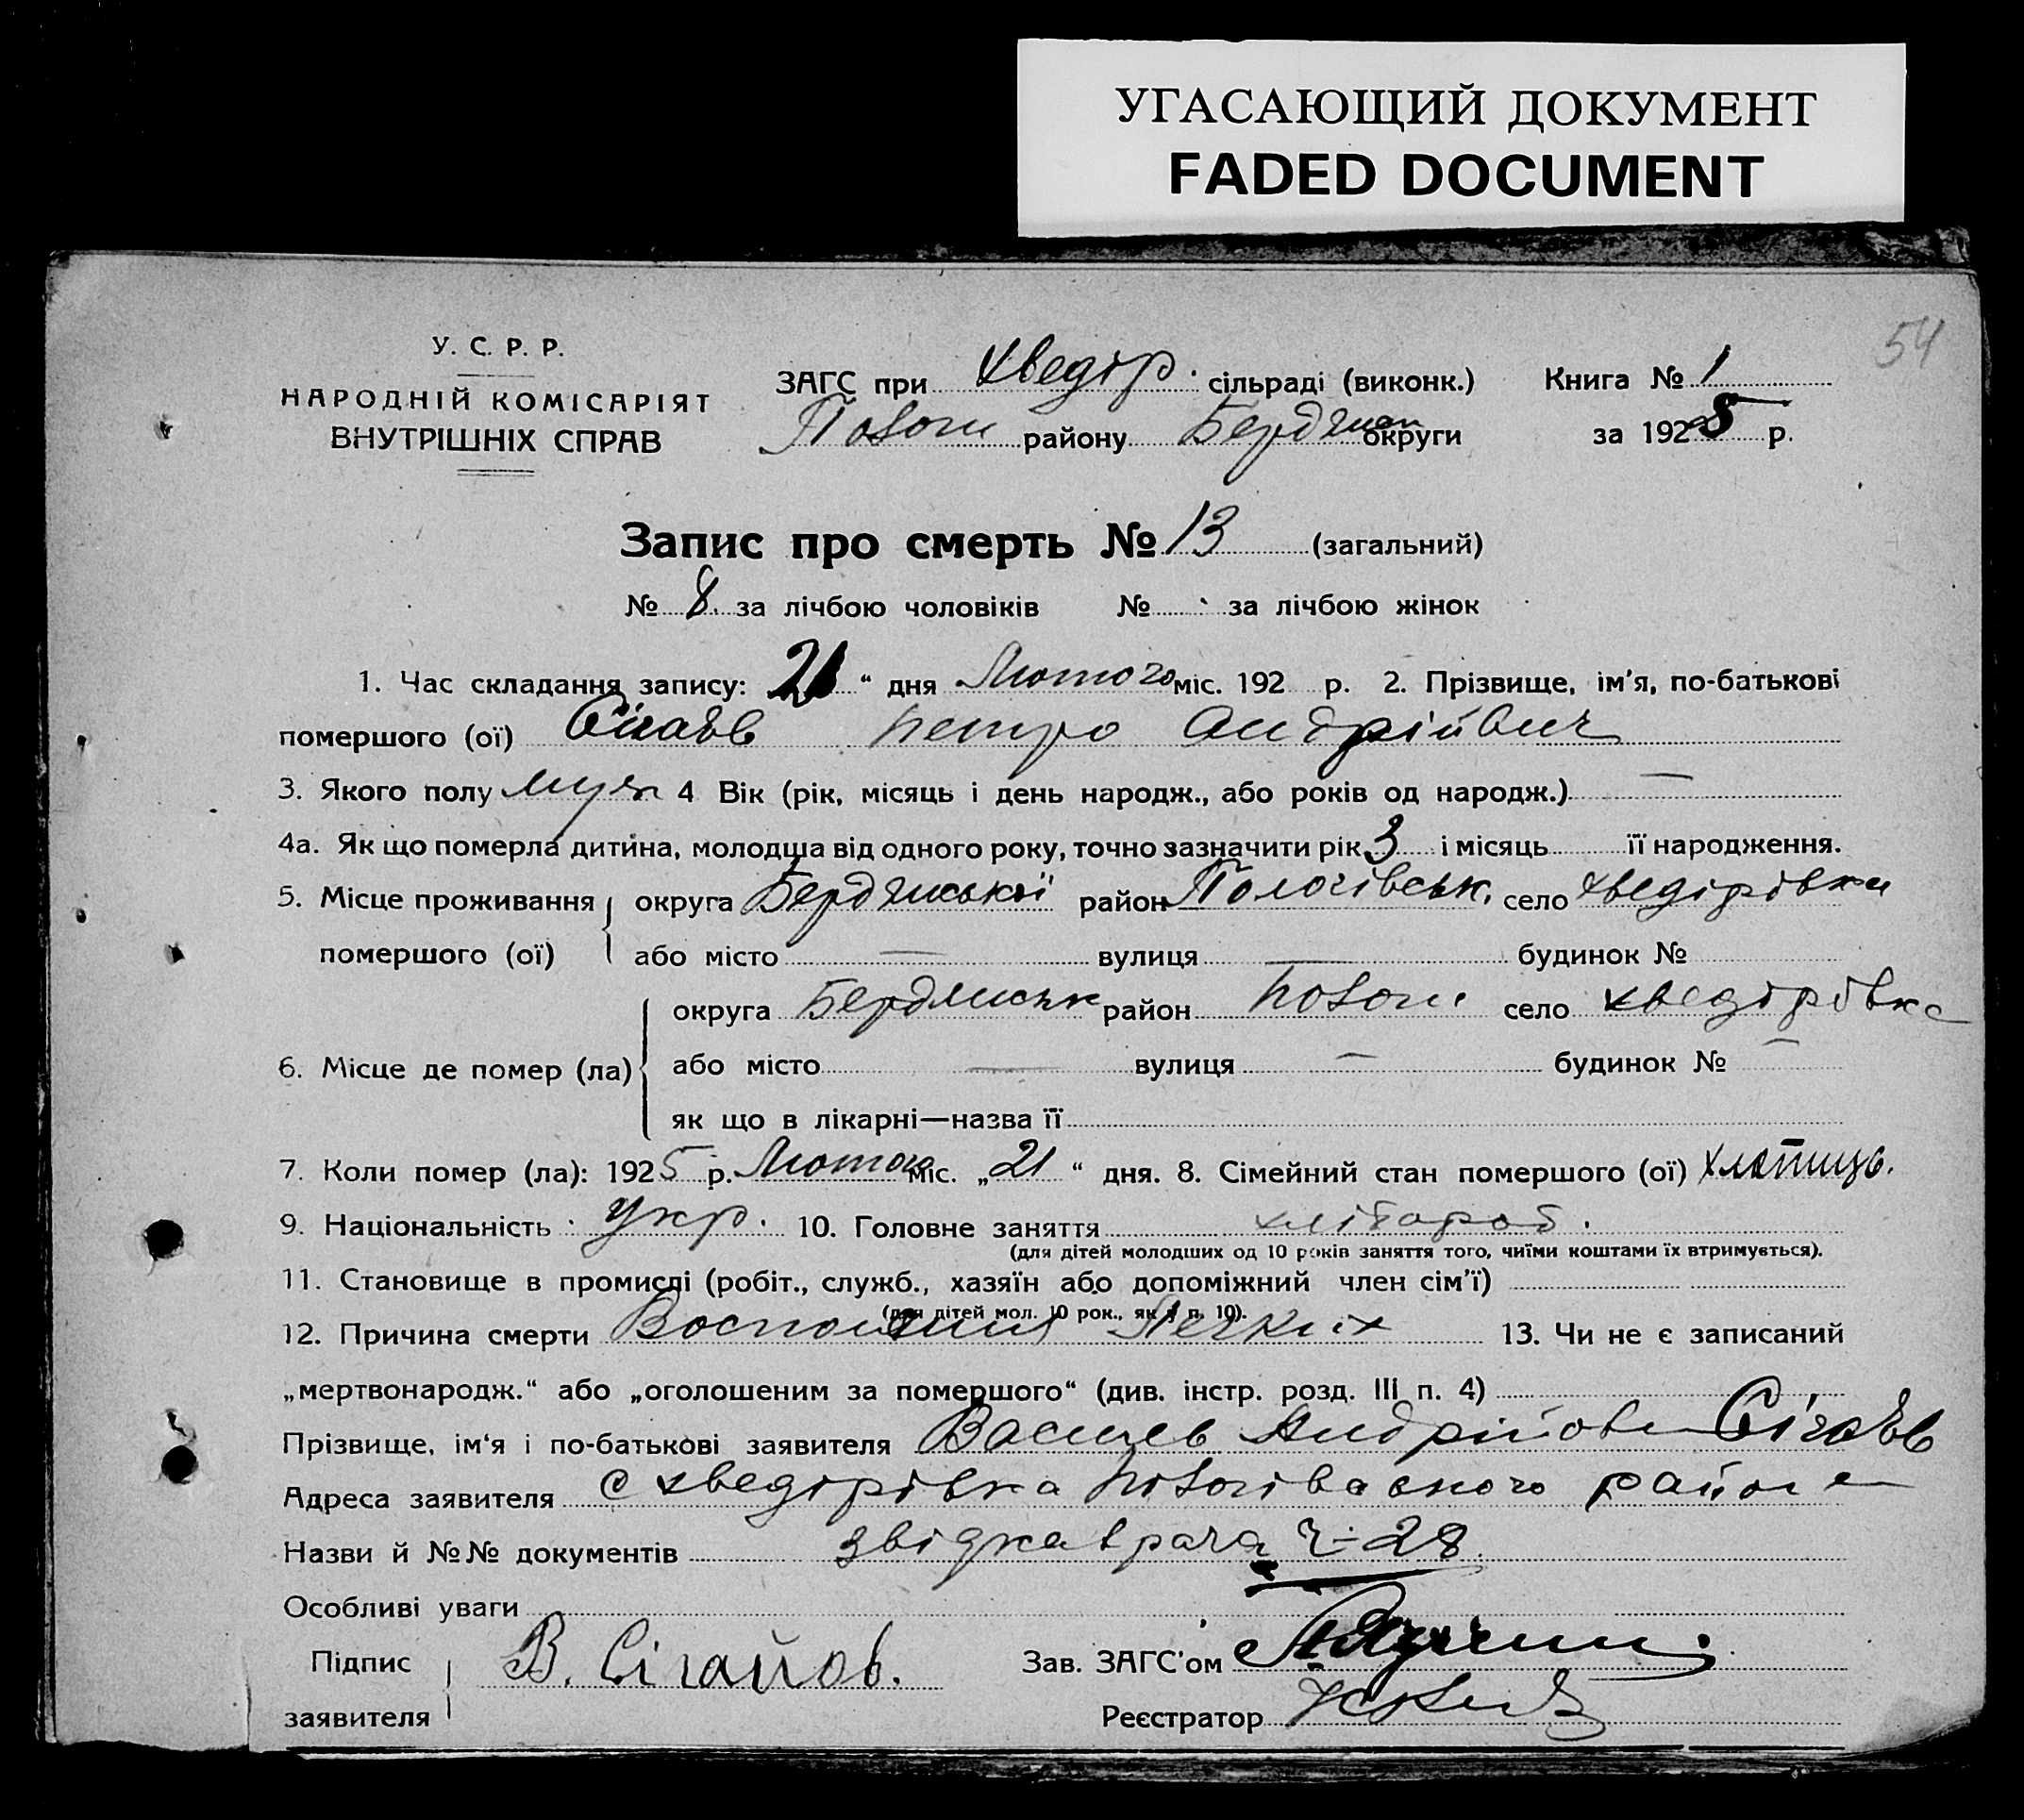 УГАСАЮЩИЙ ДОКУМЕНТ
FADED DOCUMENT
54
У. С. Р. Р.
НАРОДНІЙ КОМІСАРІЯТ
ВНУТРІШНІХ СПРАВ
ЗАГС при Хведір. сільраді (виконк.) Книга № 1
Пологи району Бердян округи за 1925 р.
Запис про смерть № 13 (загальний)
№ 8. за лічбою чоловіків № за лічбою жінок
1. Час складання запису: 21 “ дня Лютого міс. 192 р. 2. Прізвище, ім'я, по-батькові
помершого (ої) Петро Андрійович
3. Якого полу муж 4 Вік (рік, місяць і день народж., або років од народж.) —
4а. Як що померла дитина, молодша від одного року, точно зазначити рік 3 і місяць її народження.
5. Місце проживання округа Бердянської район Пологівськ. село Хведірівка
помершого (ої) або місто — вулиця — будинок №
6. Місце де помер (ла) округа Бердянськ район Пологи село Хведірівка
або місто — вулиця — будинок № —
як що в лікарні—назва її
7. Коли помер (ла): 1925 р. Лютого міс. „21 “ дня. 8. Сімейний стан помершого (ої) хлопиць.
9. Національність Укр. 10. Головне заняття хлібороб.
(для дітей молодших од 10 років заняття того, чиїми коштами їх втримується).
11. Становище в промислі (робіт., служб., хазяїн або допоміжний член сім'ї)
(для дітей мол. 10 рок., як і п. 10).
12. Причина смерти Восполения Легких 13. Чи не є записаний
„мертвонародж.“ або „оголошеним за помершого“ (див. інстр. розд. III п. 4)
Прізвище, ім'я і по-батькові заявителя Андрійов Сігаєв
Адреса заявителя с Хведірівка района
Назви й №№ документів звідка врача Ч-28.
Особливі уваги
Підпис В. Сігайов. Зав. ЗАГС'ом
заявителя Реєстратор